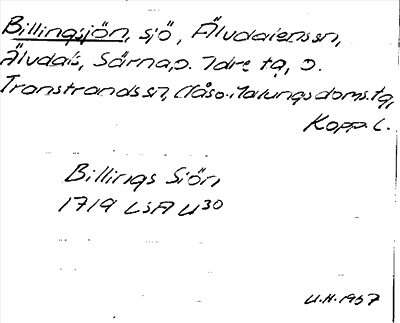 Billingsjön, sjö, Älvdalens sn,
Älvdals, Särna o. Idre tg, o.
Transtrands sn, Nås o. Malungs doms. tg,
Kopp. l.
Billings Siön
1719 LSA U30
U.H. 1957